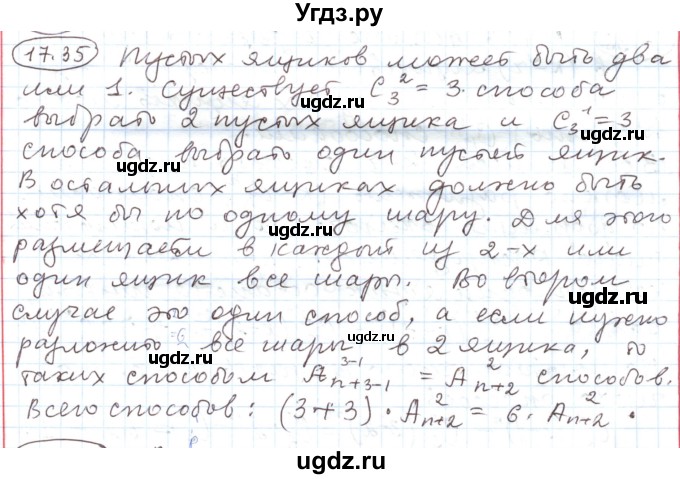 Угдз.ру
17.35 Пустых ящиков может быть два
или 1. Существует C₃² = 3 способа
выбрать 2 пустых ящика и C₃¹ = 3
способа выбрать один пустой ящик.
В остальных ящиках должно быть
хотя бы по одному шару. Для этого
разместим в каждый из 2-х или
один ящик все шары. Во втором
случае это один способ, а если нужно
разложить все шары в 2 ящика, то
таких способом A³⁻¹ₙ₊₃₋₁ = A²ₙ₊₂ способов.
Всего способов: (3+3) · A²ₙ₊₂ = 6 · A²ₙ₊₂.
ughdz.ru
ughdz.ru
ughdz.ru
ughdz.ru
ughdz.ru
ughdz.ru
ughdz.ru
ughdz.ru
ughdz.ru
ughdz.ru
ughdz.ru